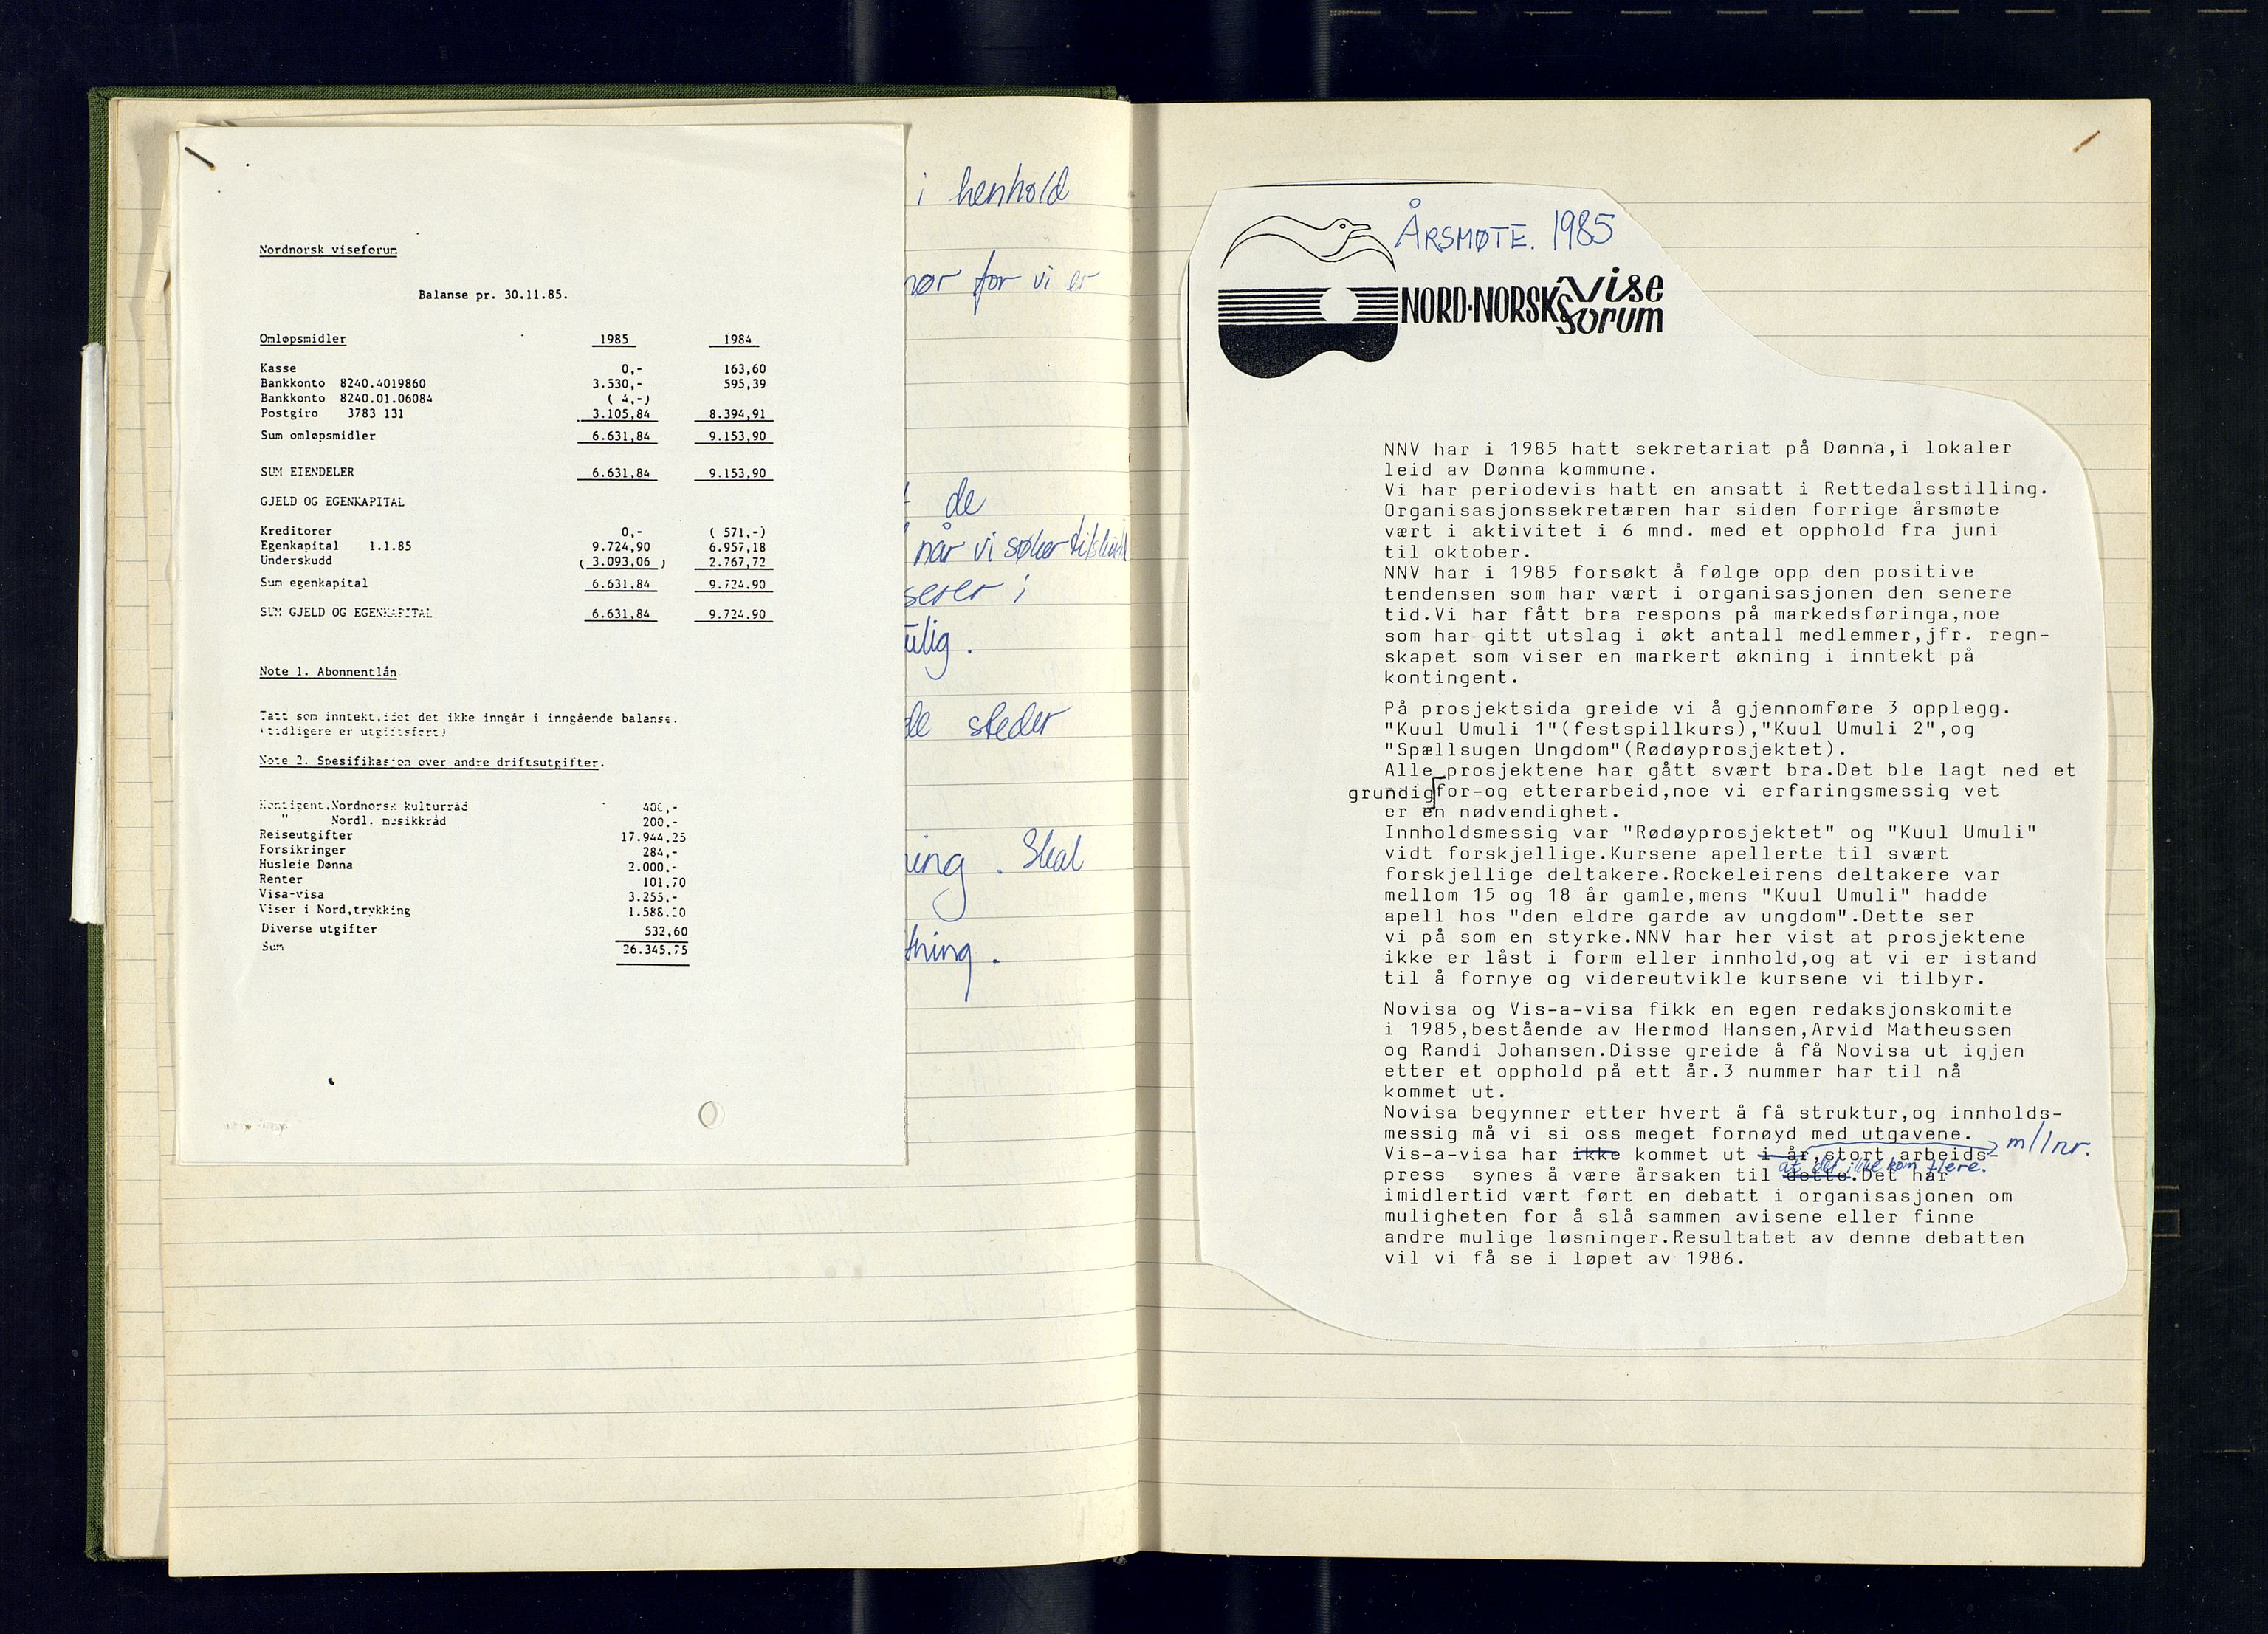 Nordnorsk viseforum
Balanse pr. 30.11.85.
Omløpsmidler 1985 1984
Kasse 0,- 163,60
Bankkonto 8240.4019860 3.530,- 595,39
Bankkonto 8240.01.06084 ( 4,-)
Postgiro 3783 131 3.105,84 8.394,91
Sum omløpsmidler 6.631,84 9.153,90
SUM EIENDELER 6.631,84 9.153,90
GJELD OG EGENKAPITAL
Kreditorer 0,- ( 571,-)
Egenkapital 1.1.85 9.724,90 6.957,18
Underskudd ( 3.093,06 ) 2.767,72
Sum egenkapital 6.631,84 9.724,90
SUM GJELD OG EGENKAPITAL 6.631,84 9.724,90
Note 1. Abonnentlån
Tatt som inntekt,idet det ikke inngår i inngående balanse.
(tidligere er utgiftsført)
Note 2. Spesifikasjon over andre driftsutgifter.
Kontigent.Nordnorsk kulturråd 400,-
" Nordl. musikkråd 200,-
Reiseutgifter 17.944,25
Forsikringer 284,-
Husleie Dønna 2.000,-
Renter 101,70
Visa-visa 3.255,-
Viser i Nord,trykking 1.588.20
Diverse utgifter 532,60
Sum 26.345,75
i henhold
for vi er
de
når vi søker tilskudd
i
steder
. Skal
ÅRSMØTE. 1985
NORD-NORSK Vise forum
NNV har i 1985 hatt sekretariat på Dønna,i lokaler
leid av Dønna kommune.
Vi har periodevis hatt en ansatt i Rettedalsstilling.
Organisasjonssekretæren har siden forrige årsmøte
vært i aktivitet i 6 mnd. med et opphold fra juni
til oktober.
NNV har i 1985 forsøkt å følge opp den positive
tendensen som har vært i organisasjonen den senere
tid.Vi har fått bra respons på markedsføringa,noe
som har gitt utslag i økt antall medlemmer,jfr. regn-
skapet som viser en markert økning i inntekt på
kontingent.
På prosjektsida greide vi å gjennomføre 3 opplegg.
"Kuul Umuli 1"(festspillkurs),"Kuul Umuli 2",og
"Spællsugen Ungdom"(Rødøyprosjektet).
Alle prosjektene har gått svært bra.Det ble lagt ned et
grundig for-og etterarbeid,noe vi erfaringsmessig vet
er en nødvendighet.
Innholdsmessig var "Rødøyprosjektet" og "Kuul Umuli"
vidt forskjellige.Kursene apellerte til svært
forskjellige deltakere.Rockeleirens deltakere var
mellom 15 og 18 år gamle,mens "Kuul Umuli" hadde
apell hos "den eldre garde av ungdom".Dette ser
vi på som en styrke.NNV har her vist at prosjektene
ikke er låst i form eller innhold,og at vi er istand
til å fornye og videreutvikle kursene vi tilbyr.
Novisa og Vis-a-visa fikk en egen redaksjonskomite
i 1985,bestående av Hermod Hansen,Arvid Matheussen
og Randi Johansen.Disse greide å få Novisa ut igjen
etter et opphold på ett år.3 nummer har til nå
kommet ut.
Novisa begynner etter hvert å få struktur,og innholds-
messig må vi si oss meget fornøyd med utgavene.
m/1nr.
Vis-a-visa har ikke kommet ut i år,stort arbeids-
at det ikke kom flere.
press synes å være årsaken til dette.Det har
imidlertid vært ført en debatt i organisasjonen om
muligheten for å slå sammen avisene eller finne
andre mulige løsninger.Resultatet av denne debatten
vil vi få se i løpet av 1986.